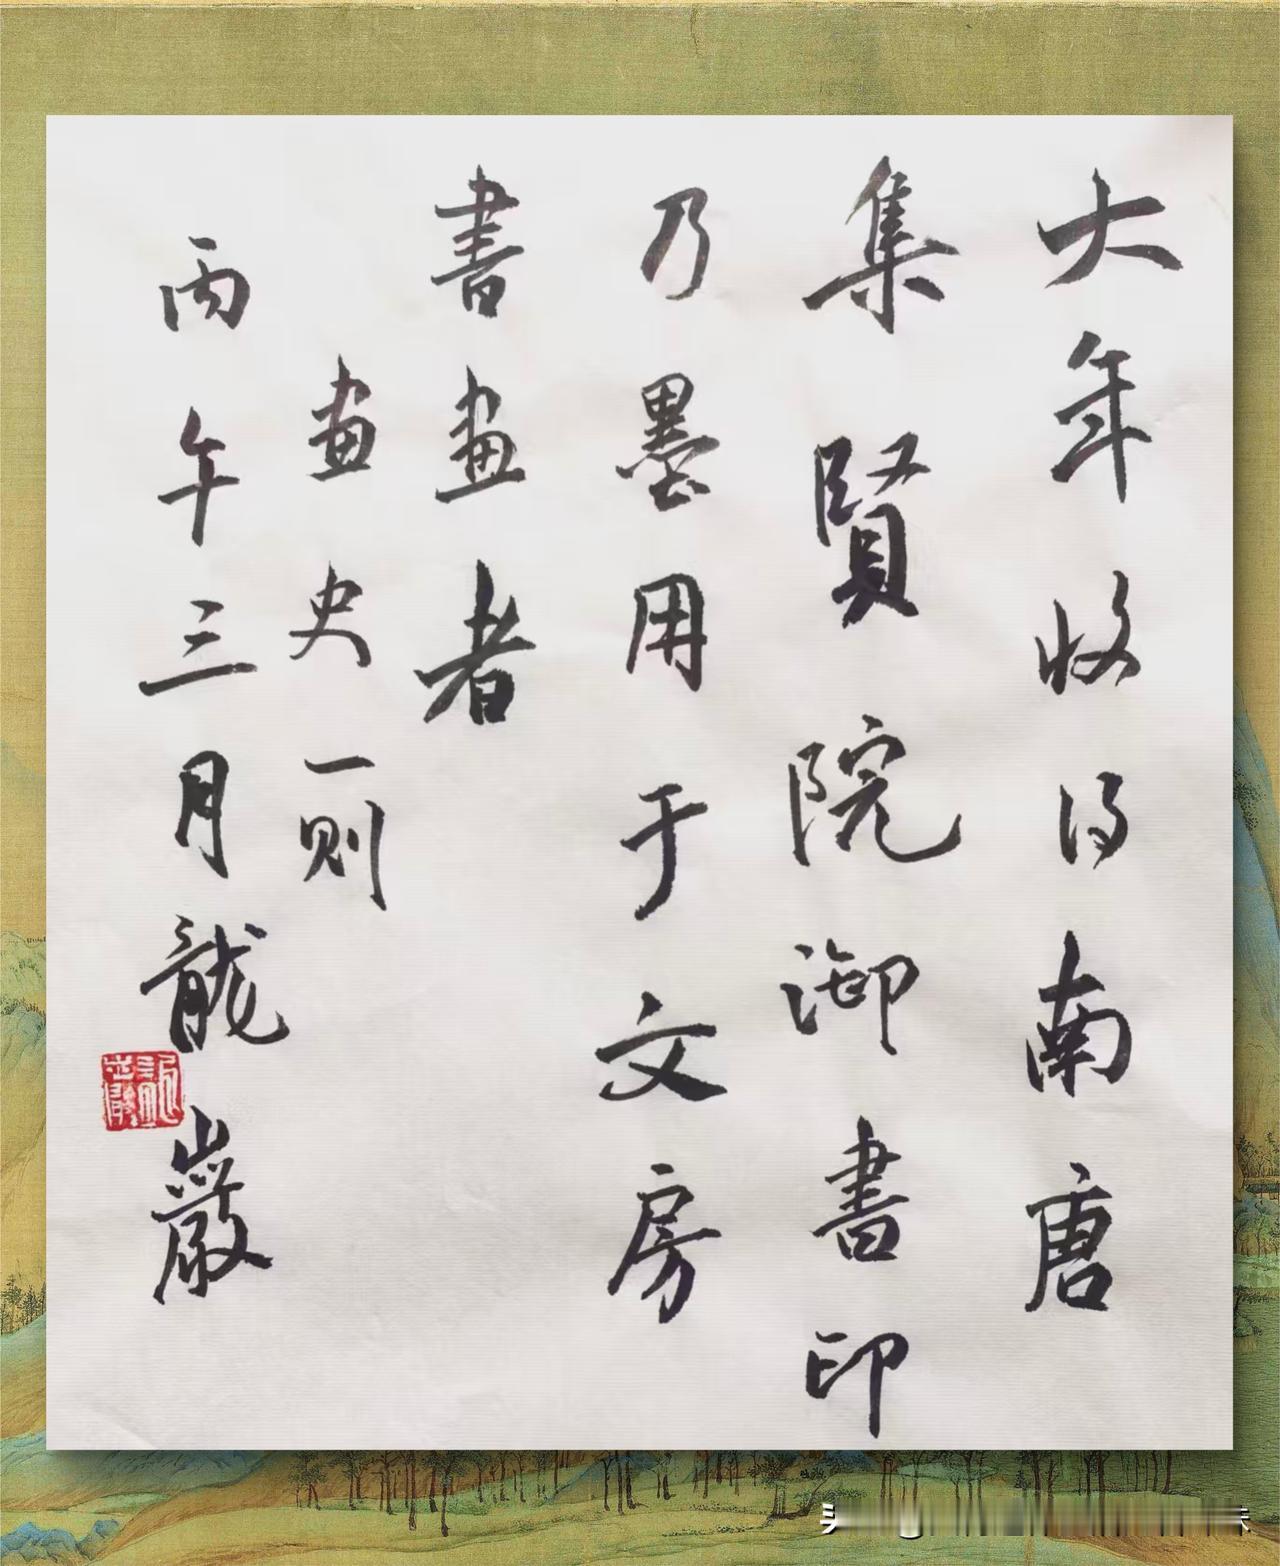 大年收得南唐
集賢院御書印
乃墨用于文房
書畫者
畫史一则
丙午三月龍巖